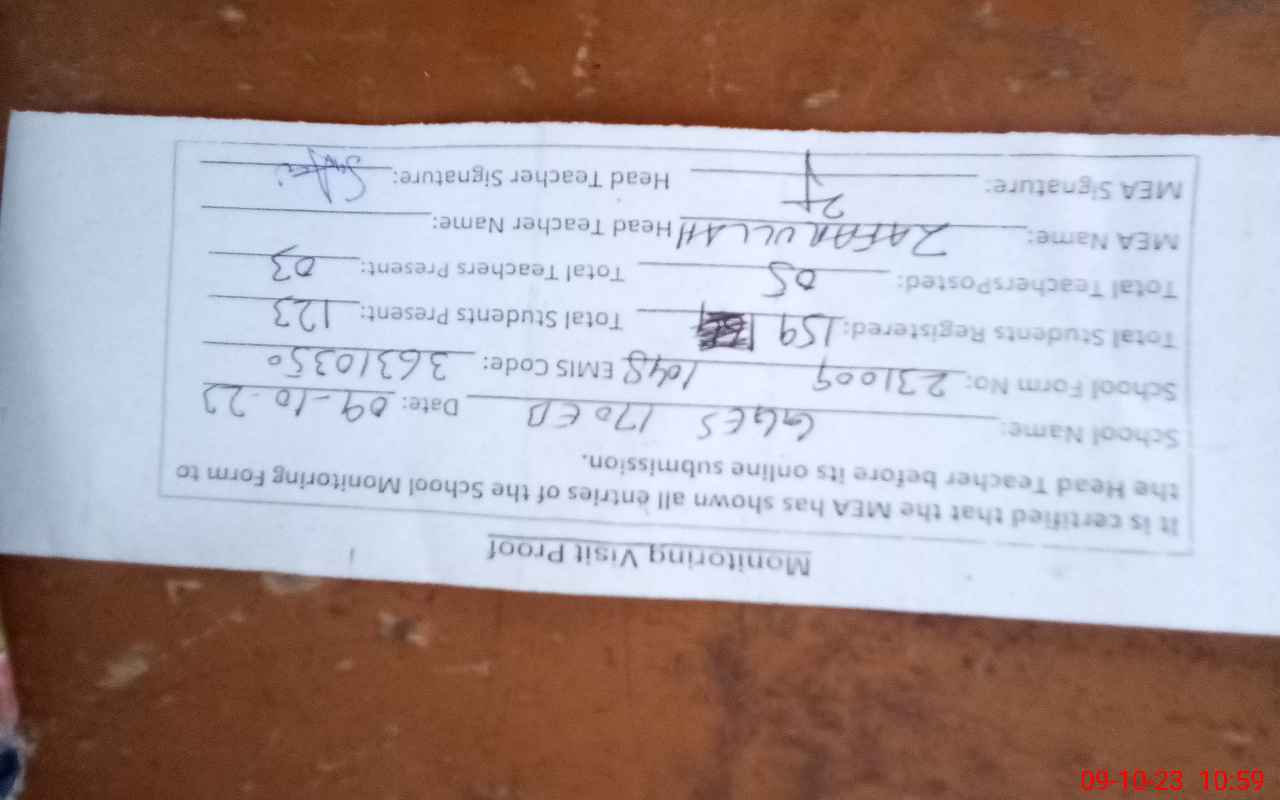 Monitoring Visit Proof
It is certified that the MEA has shown all entries of the School Monitoring Form to
the Head Teacher before its online submission.
School Name: GGES 170 EB Date: 09-10-23
School Form No: 231009 1048 EMIS Code: 36310350
Total Students Registered: 159 Total Students Present: 123
Total TeachersPosted: 05 Total Teachers Present: 03
MEA Name: ZAFARULLAH Head Teacher Name:
MEA Signature: Head Teacher Signature:
09-10-23 10:59